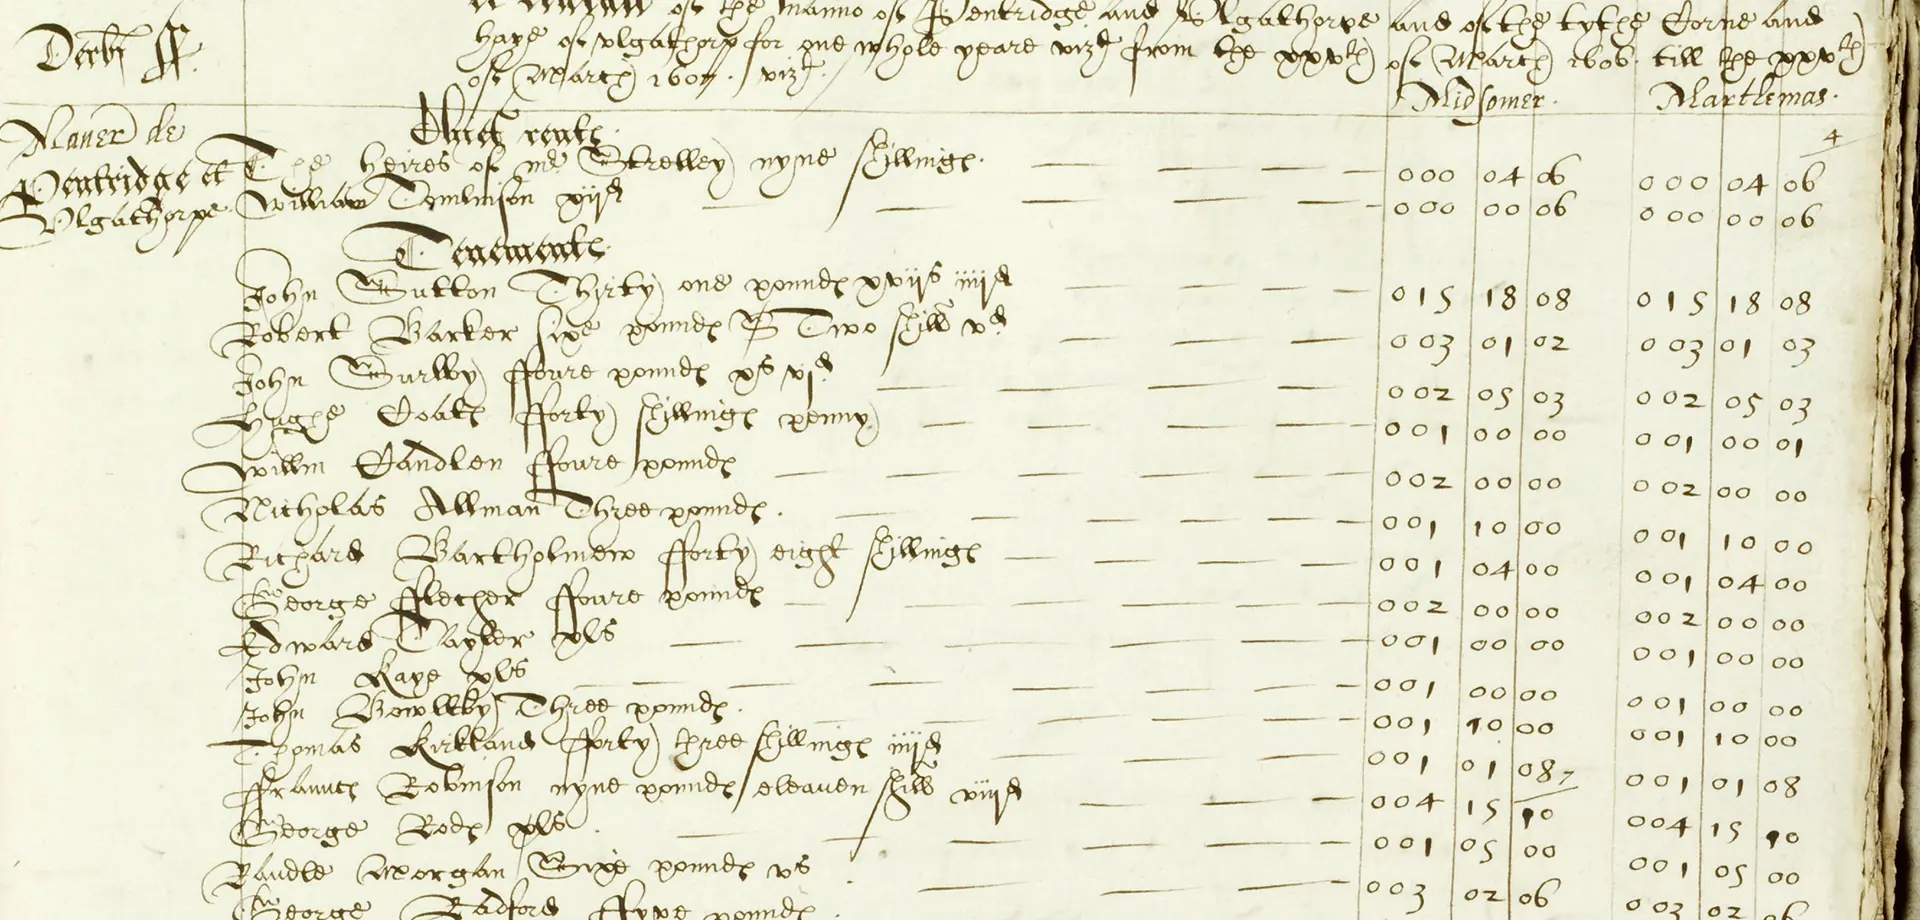 Derb ss.
of the Manno of Pentridge and Ulgathorpe and of the tythe Corne and
haye of Ulgathorp for one whole yeare vizt from the xxvth of March 1606 till the xxvth
of March 1607. vizt.
Midsomer. Martlemas.
4
Maner de Pentridge et Ulgathorpe
Chief rents.
The heires of mr Strelley nyne shillings. 000 04 06 000 04 06
William Tomlinson xijd 000 00 06 000 00 06
Tenements.
John Sutton Thirty one pounds xvijs iiijd 015 18 08 015 18 08
Robert Barker sixe pounds Two shill vd 003 01 02 003 01 03
John Surlby ffoure pounds xs vjd 002 05 03 002 05 03
Hughe Coats fforty shillings penny 001 00 00 001 00 01
Willm Candlen ffoure pounds 002 00 00 002 00 00
Nicholas Allman Three pounds. 001 10 00 001 10 00
Richard Bartholmew fforty eight shillings 001 04 00 001 04 00
George ffletcher ffoure pounds 002 00 00 002 00 00
Edward Tayler xls 001 00 00 001 00 00
John Kaye xls 001 00 00 001 00 00
John Bowlkby Three pounds. 001 10 00 001 10 00
Thomas Kirkland fforty three shillings iiijd 001 01 08 001 01 08
ffrancis Robinson nyne pounds eleaven shill viijd 004 15 10 004 15 10
George Rods ls. 001 05 00 001 05 00
Randle Morgan Sixe pounds vs 003 02 06 003 02 06
George Radford ffyve pounds.